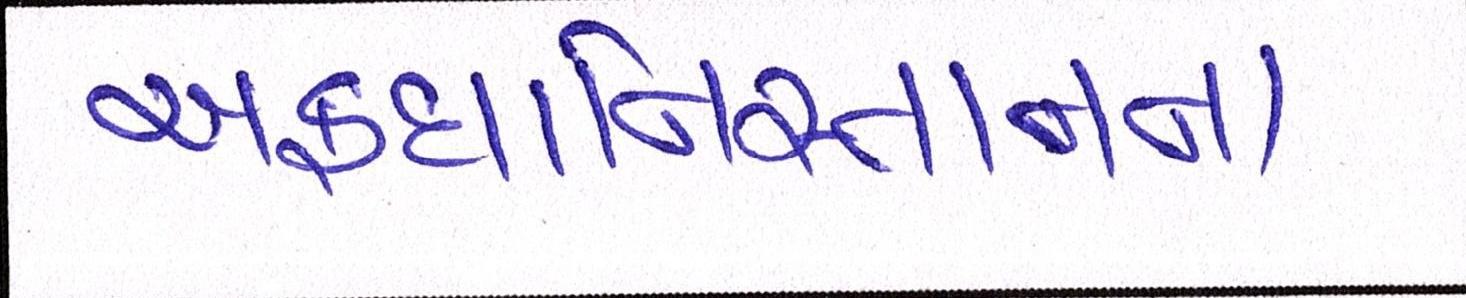 અફઘાનિસ્તાનના